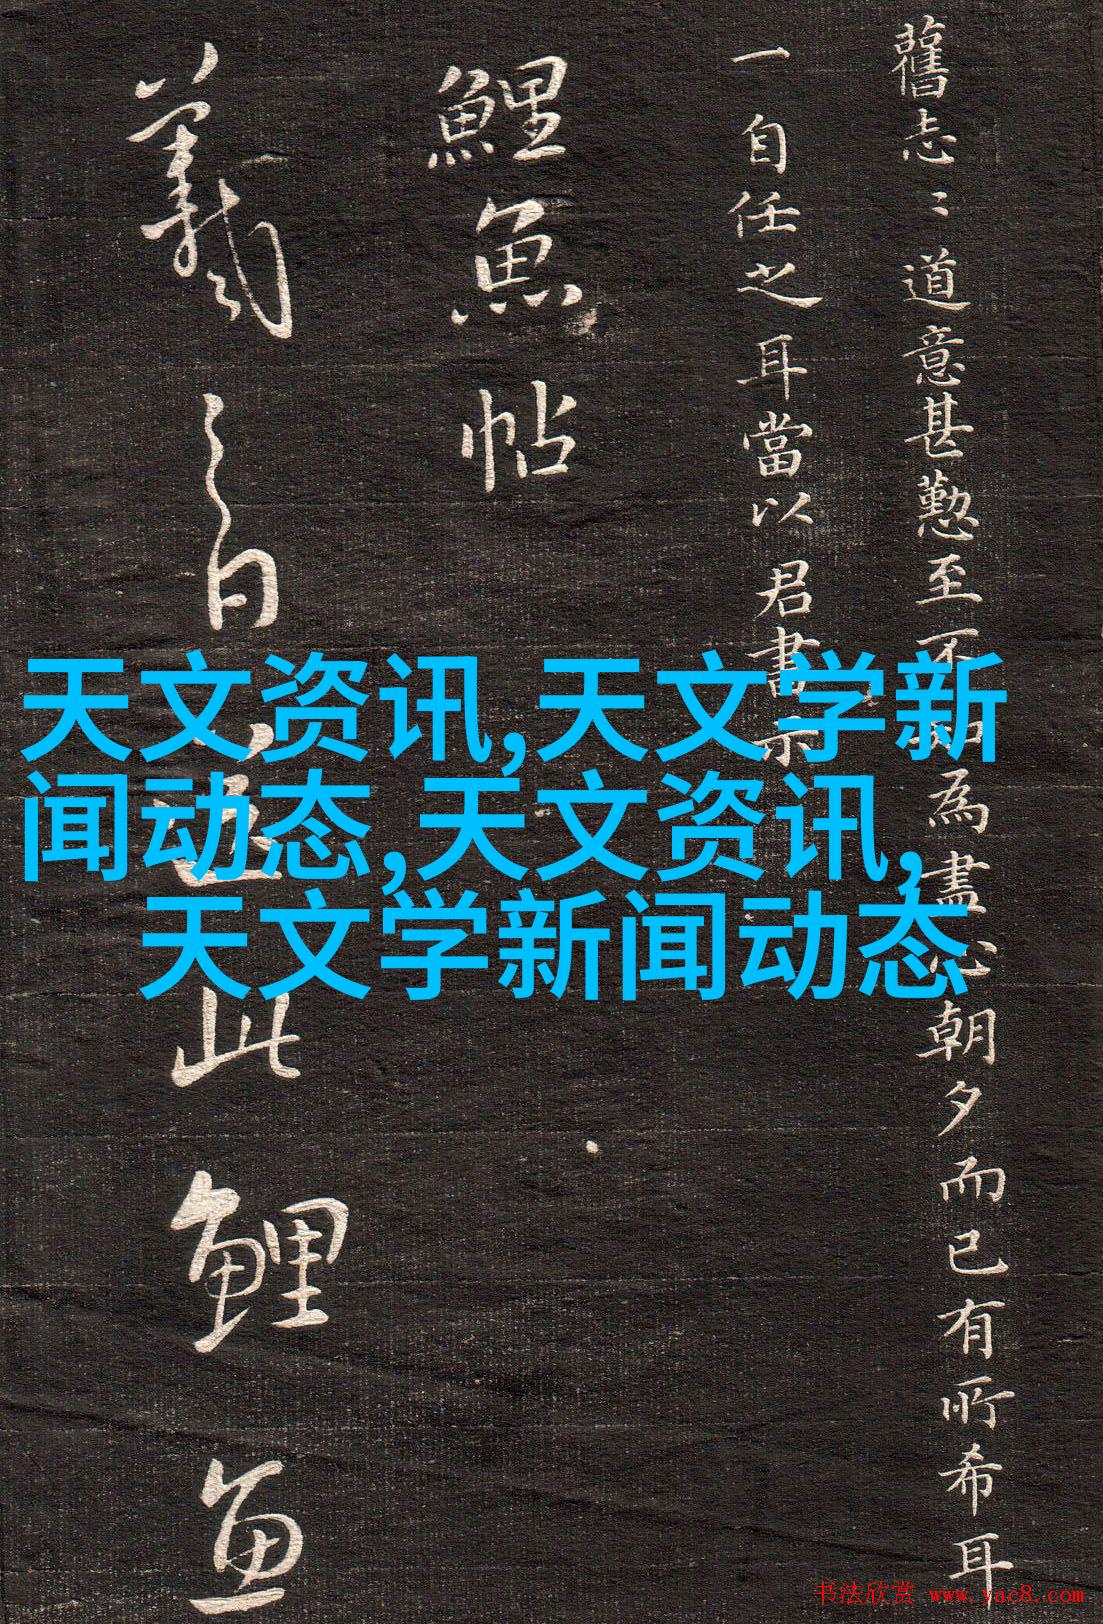 舊志〻道意甚懃至不為盡心朝夕而已有所希耳
一自任之耳當以君書示
鯉魚帖
羲之白送此鯉魚
天文资讯,天文学新
闻动态,天文资讯,
天文学新闻动态
书法欣赏 www.yac8.com